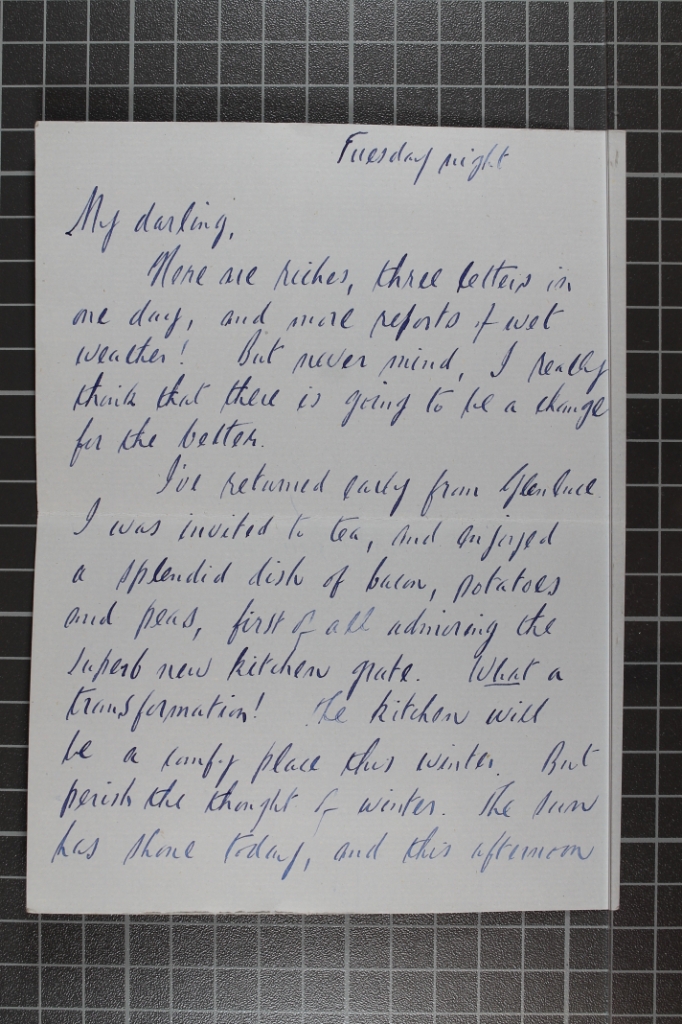 Tuesday night
My darling,
Here are riches, three letters in
one day, and more reports of wet
weather! But never mind, I really
think that there is going to be a change
for the better.
I've returned early from Glenluce
I was invited to tea, and enjoyed
a splendid dish of bacon, potatoes
and peas, first of all admiring the
superb new kitchen grate. What a
transformation! The kitchen will
be a comfy place this winter. But
perish the thought of winter. The sun
has shone today, and this afternoon